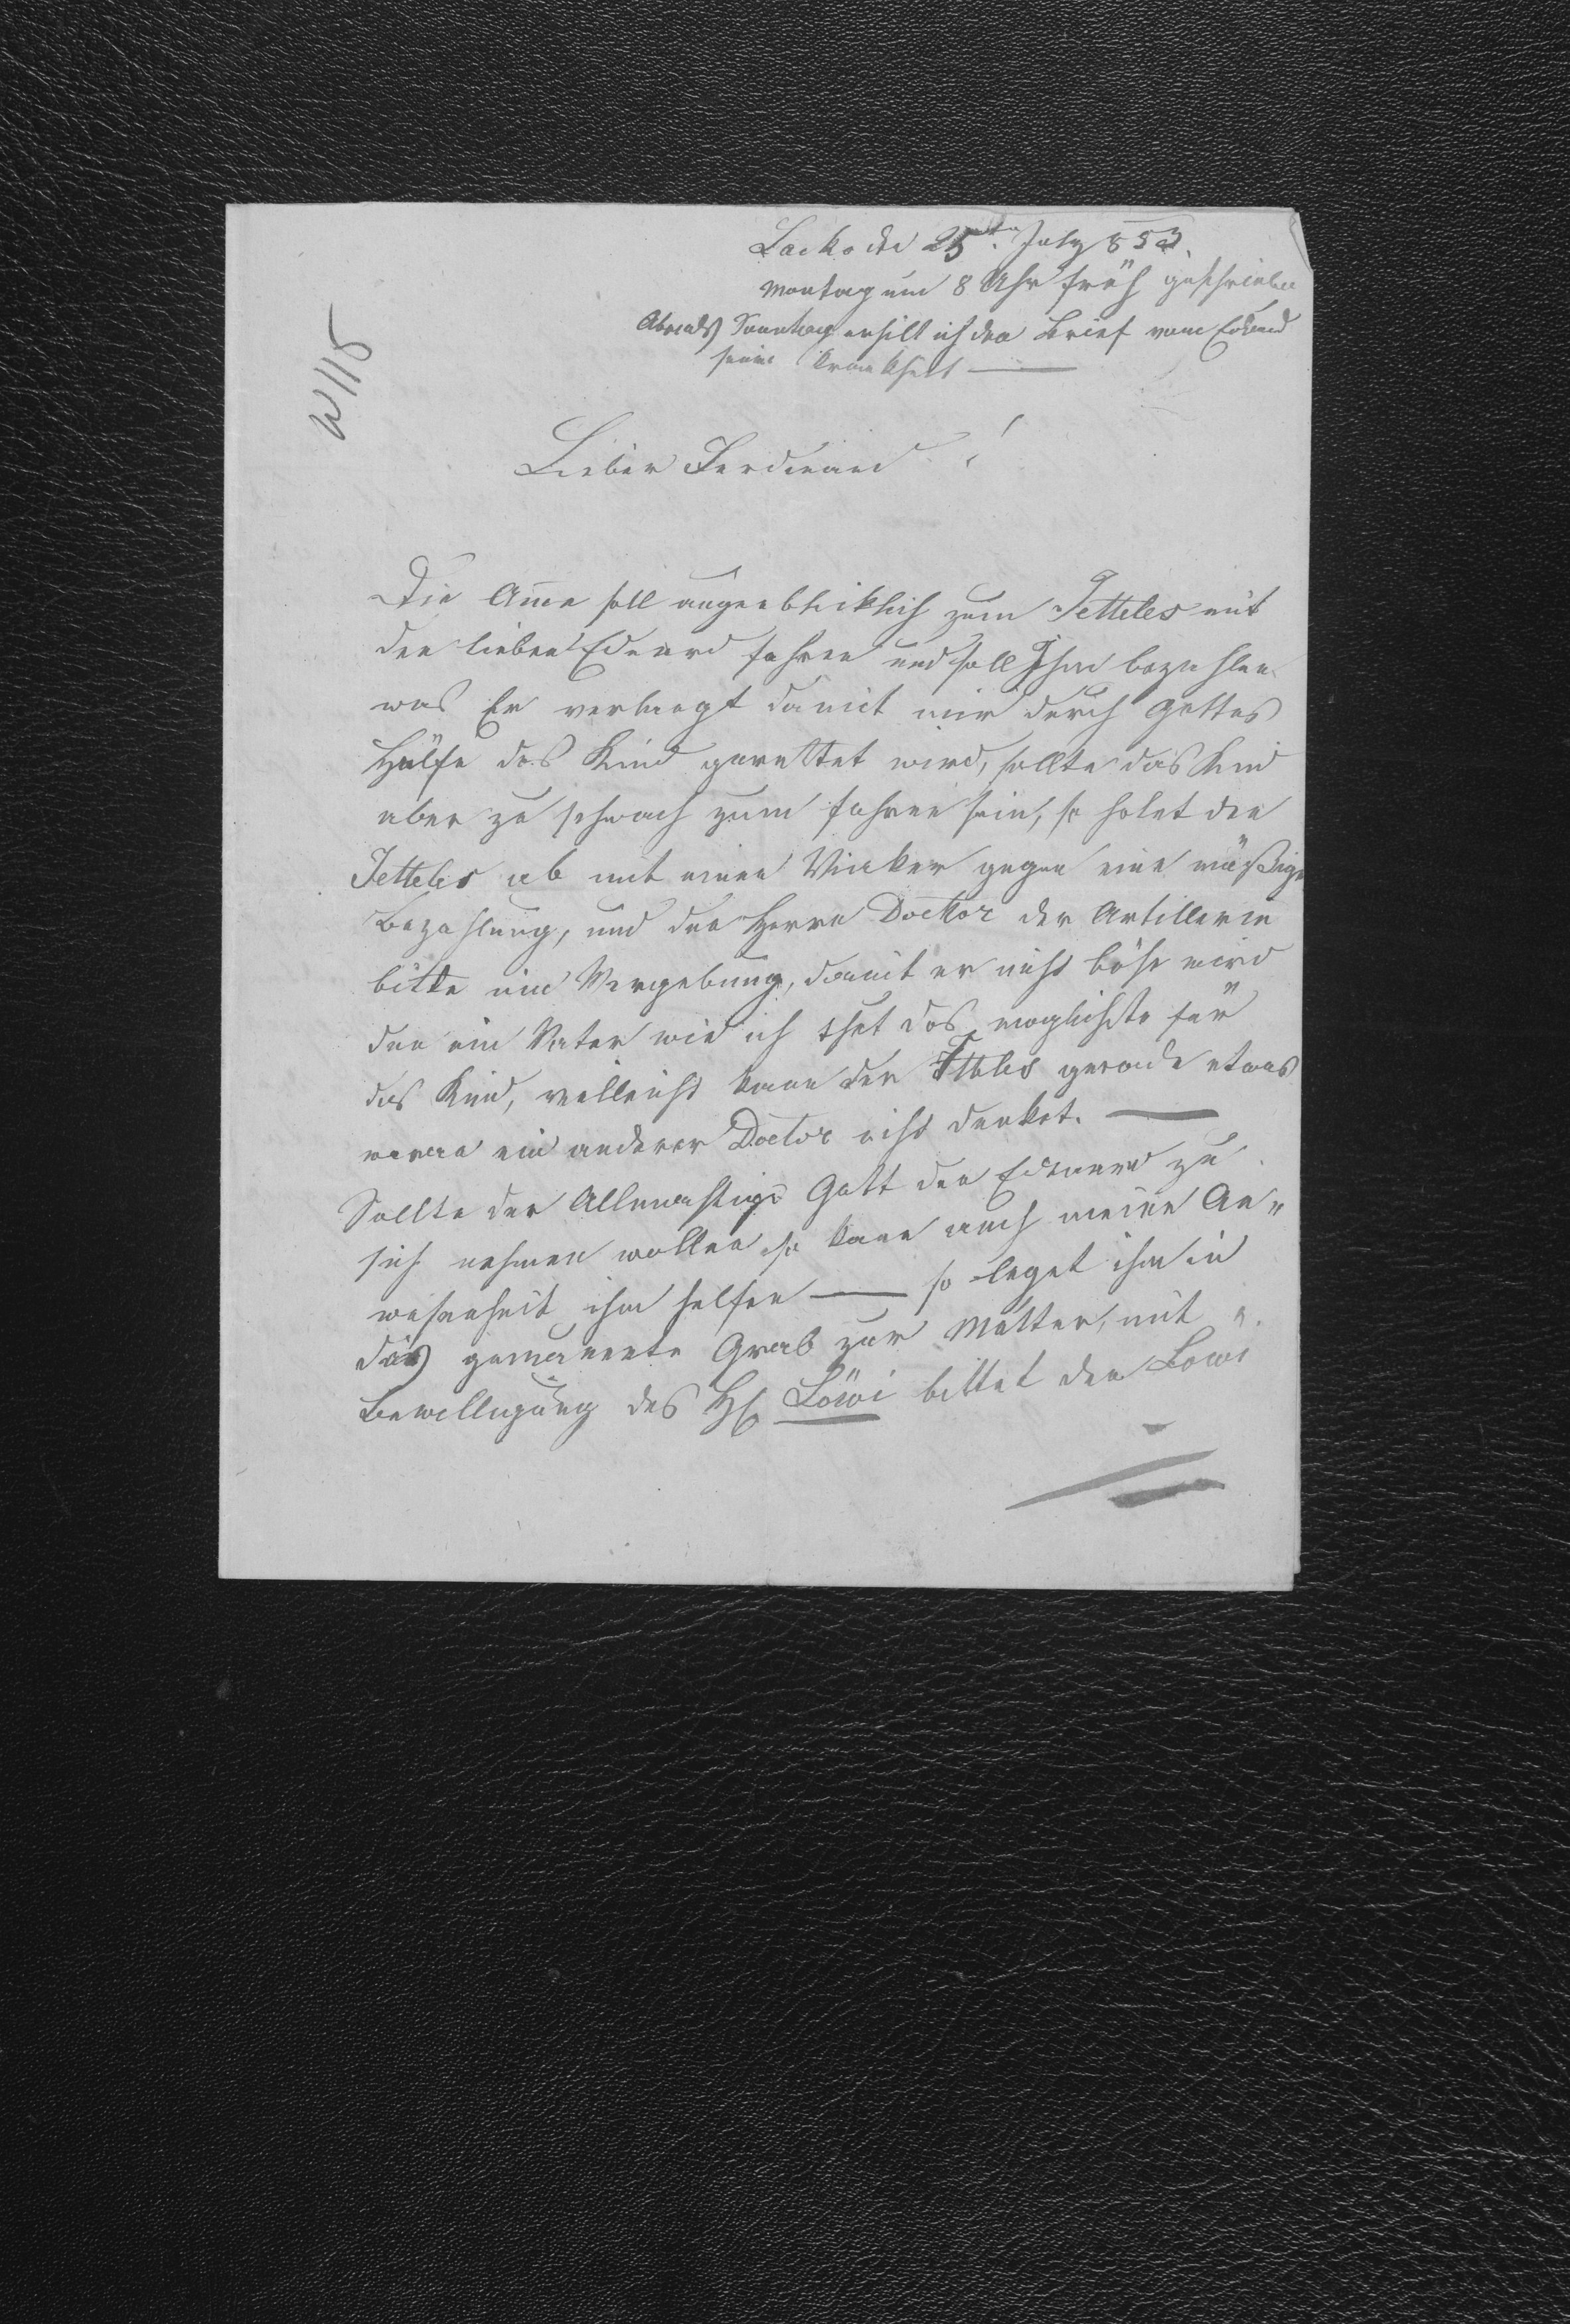 W115
Lacko den 25ten July 853.
Montag um 8 Uhr früh geschrieben
Abends Sonntag erhilt ich den Brief vom Eduard
seine Krankheit —
Lieber Ferdinand!
Die Ame soll augenbliklich zum Jetteles mit
den lieben Eduard fahren und soll Ihm bezahlen
was Er verlangt damit mir durch Gottes
Hülfe das Kind gerettet wird, sollte das Kind
aber zu schwach zum fahren sein, so holet den
Jetteles ab mit einen Viaker gegen eine mäßige
Bezahlung, und den Herrn Docktor der Artillerie
bitte um Vergebung, damit er nicht böse wird
den ein Vater wie ich thut das moglichste für
das Kind, velleicht kann der Jtteles gerade etwas
woran ein anderer Doctor nicht denket. —
Sollte der Allmachtige Gott den Eduard zu
sich nehmen wollen so kann auch meine An„
wesenheit ihm helfen — so leget ihm in
das gemauerte Grab zur Mutter, mit
Bewilligung des H Löwi bittet den Löwi